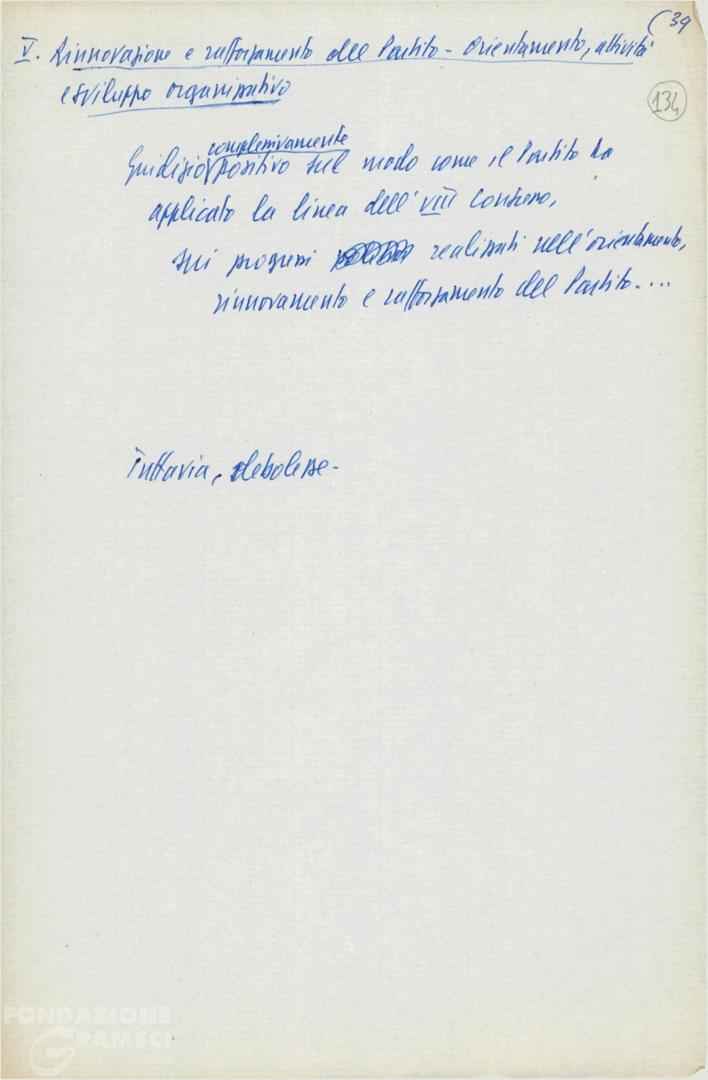 (39
V. Rinnovazione e rafforzamento del Partito - Orientamento, attività
e sviluppo organizzativo
134
complessivamente
Giudizio positivo sul modo come il Partito ha
applicato la linea dell'VIII Congresso,
sui progressi realizzati nell'orientamento,
rinnovamento e rafforzamento del Partito....
Tuttavia, debolezze-
FONDAZIONE
GRAMSCI